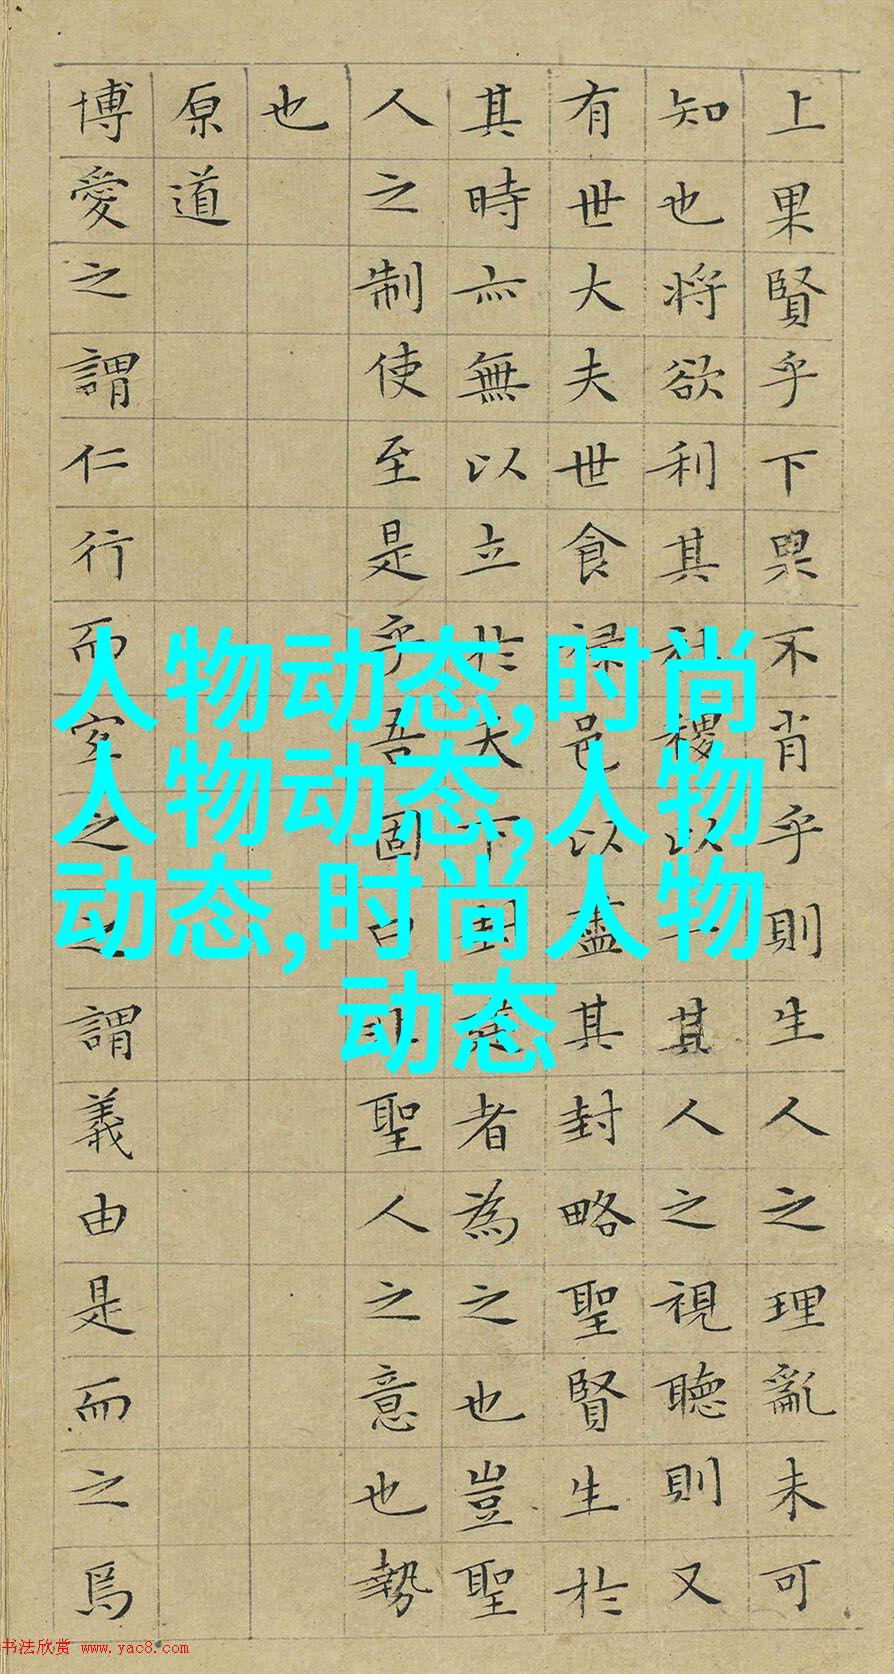 上果賢乎下果不肖乎則生人之理亂未可
知也將欲利其社稷以一其人之視聽則又
有世大夫世食祿邑以盡其封略聖賢生於
其時亦無以立於天下封者為之也豈聖
人之制使至是乎吾固曰非聖人之意也勢
也
原道
博愛之謂仁行而宜之之謂義由是而之焉
人物动态,时尚
人物动态,人物
动态,时尚人物
动态
书法欣赏 www.yac8.com